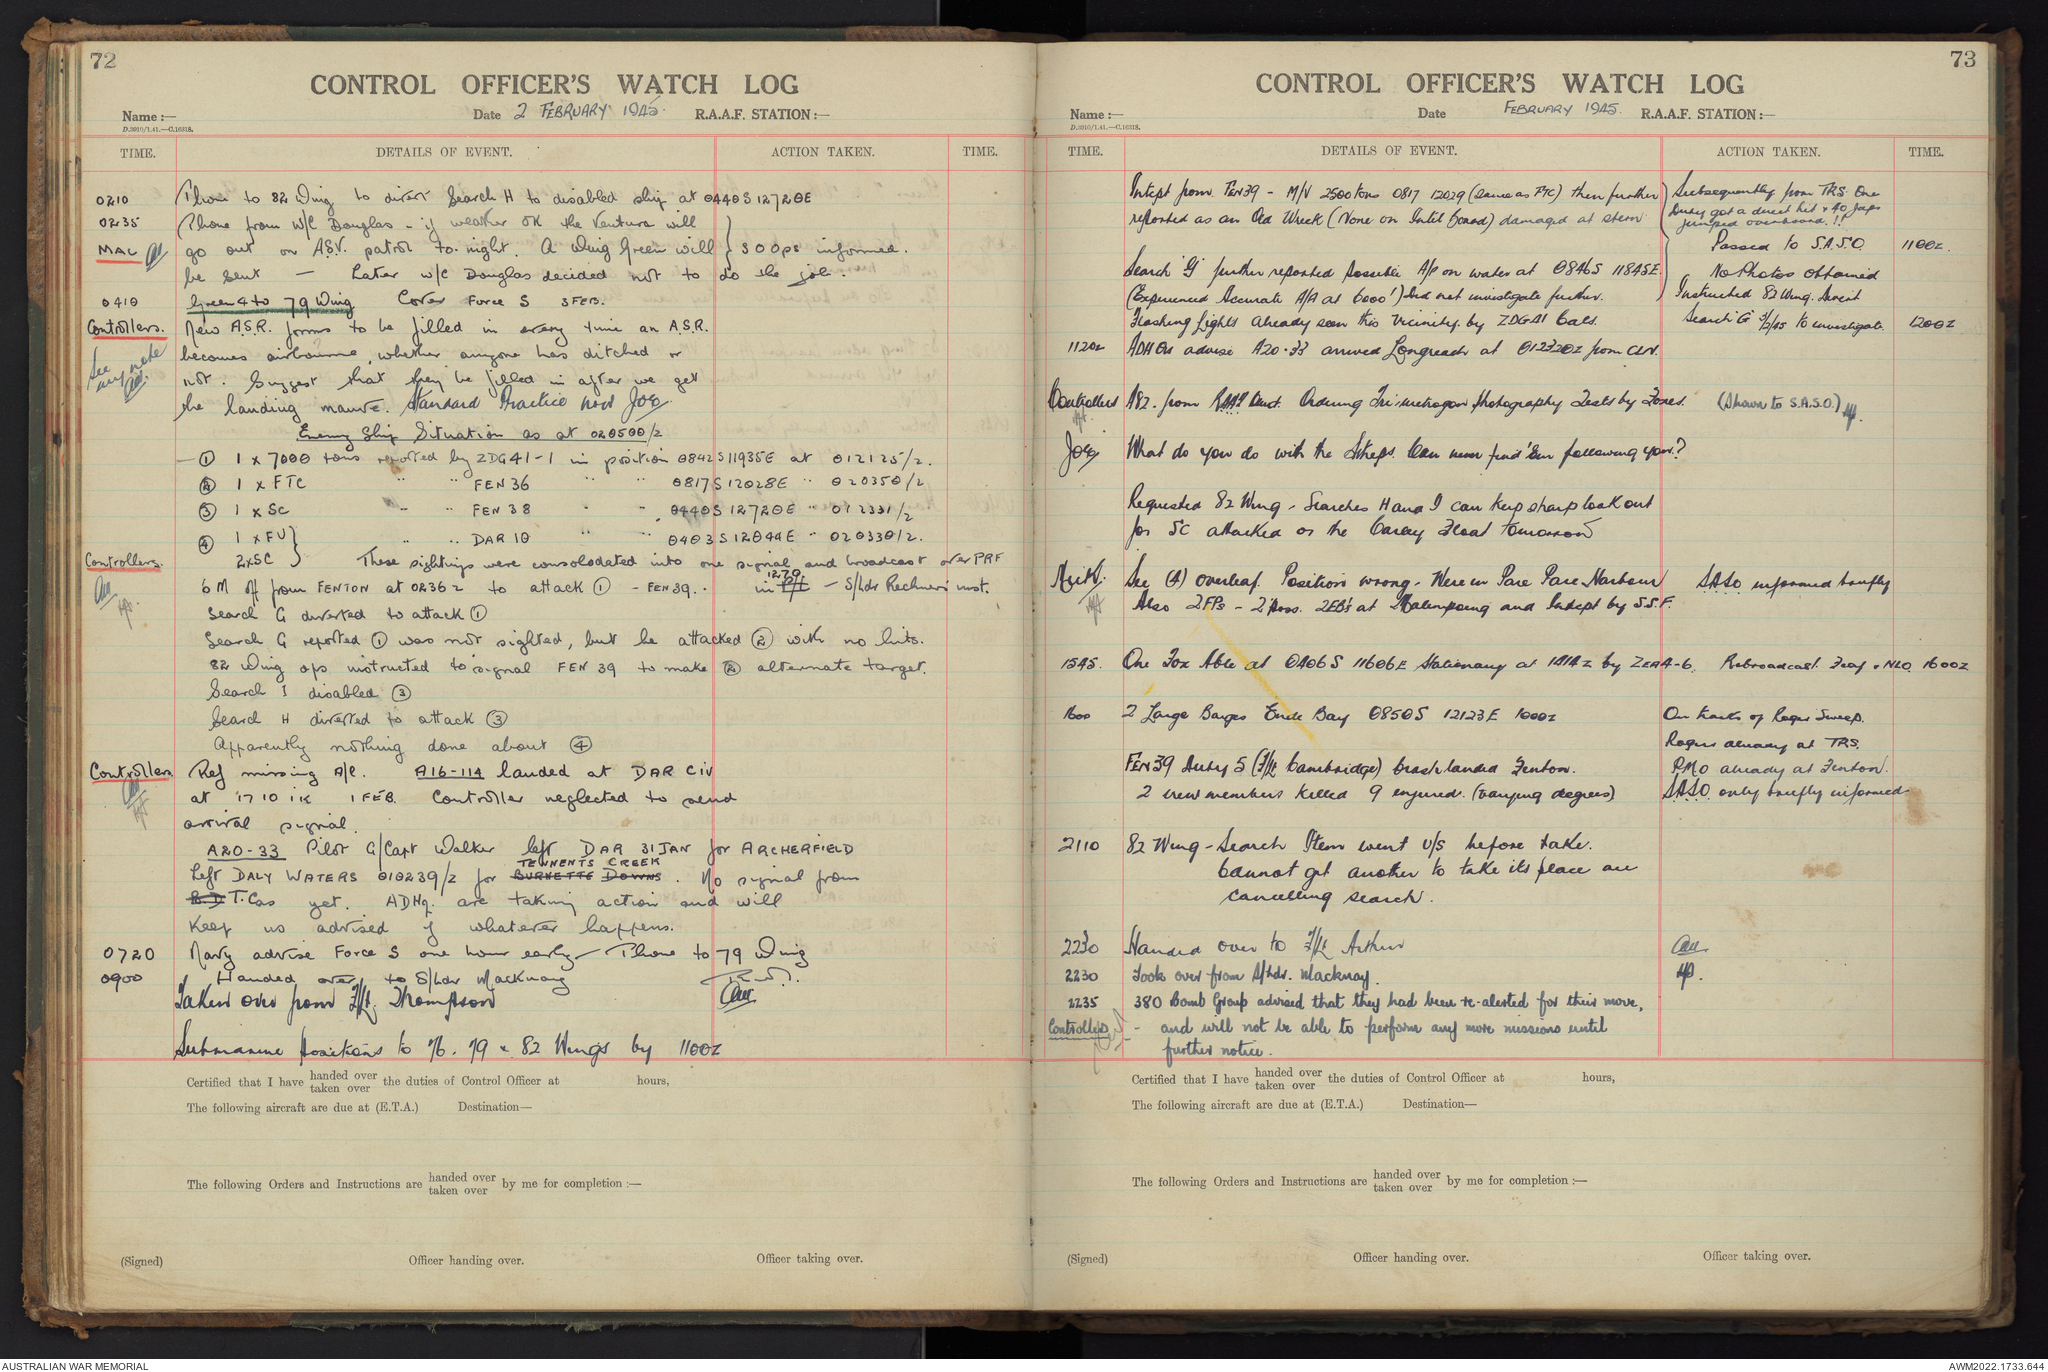 72
CONTROL OFFICER'S WATCH LOG
Name :— Date 2 FEBRUARY 1945. R.A.A.F. STATION :—
D.3910/1.41.—C.16318.
TIME. DETAILS OF EVENT. ACTION TAKEN. TIME.
0210 Phone to 82 Wing to divert Search H to disabled ship at 0440S 12720E
0235 Phone from W/C Douglas - if weather OK the Ventura will
MAC go out on A.S.V. patrol to-night. A Wing Green will } SOOps informed.
be sent — Later W/C Douglas decided not to do the job.
0410 Green 4 to 79 Wing Cover Force S 3 FEB.
Controllers. New A.S.R. forms to be filled in every time an A.S.R.
becomes airbourne, whether anyone has ditched or
See my note
not. Suggest that they be filled in after we get
the landing mauve. Standard Practice now Joe
Enemy Ship Situation as at 020500/Z
— ① 1 x 7000 tons reported by ZDG41-1 in position 0842S 11935E at 012125/Z.
② 1 x FTC " " FEN 36 " " 0817S 12028E " 020350/Z
③ 1 x SC " " FEN 38 " " 0440S 12720E " 012331/Z
④ 1 x FU } " " DAR 10 " " 0403S 12044E " 020330/Z.
Controllers. 2xSC } These sightings were consolodated into one signal and broadcast over PRF
6 M off from FENTON at 0236Z to attack ① - FEN 39. . in 1279 — S/Ldr Rechner's inst.
Search G diverted to attack ①
Search G reported ① was not sighted, but he attacked ② with no hits.
82 Wing ops instructed to signal FEN 39 to make ② alternate target.
Search I disabled ③
Search H diverted to attack ③
Apparently nothing done about ④
Controllers Ref missing A/c. A16-114 landed at DAR CIV
at 1710 IK 1 FEB. Controller neglected to send
arrival signal.
A20-33 Pilot G/Capt Walker left DAR 31 JAN for ARCHERFIELD
TENNENTS CREEK
Left DALY WATERS 010239/Z for BURNETTE DOWNS. No signal from
B.D T.C as yet. ADHq. are taking action and will
keep us advised if whatever happens.
0720 Navy advise Force S one hour early — Phone to 79 Wing
0900 Handed over to S/Ldr Macknay
Taken over from F/Lt. Thompson
Submarine positions to 76. 79 & 82 Wings by 1100Z
Certified that I have handed over taken over the duties of Control Officer at hours,
The following aircraft are due at (E.T.A.) Destination—
The following Orders and Instructions are handed over taken over by me for completion :—
(Signed) Officer handing over. Officer taking over.
73
CONTROL OFFICER'S WATCH LOG
Name :— Date FEBRUARY 1945. R.A.A.F. STATION :—
D.3910/1.41.—C.16318.
TIME. DETAILS OF EVENT. ACTION TAKEN. TIME.
Intept from FEN39 - M/V 2500 tons 0817 12029 (same as FTC) then further Subsequently from TRS. One
reported as an Old Wreck (None on Intel board) damaged at stern Duty got a direct hit & 40 Japs
jumped overboard.!!
Passed to S.A.S.O. 1100Z.
Search 'G' further reported possible A/p on water at 0846S 11845E. No Photos obtained
(Experienced Accurate A/A at 6000') Did not investigate further. Instructed 82 Wing. divert
Flashing Lights already seen this vicinity by ZDG41 Cats. Search 'G' 3/2/45 to investigate. 1200Z
1120Z ADHQs advise A20-33 arrived Longreach at 012320Z from CLN.
Controllers A82. from RAAF Comd. Ordering Tri-metrogon photography Tests by Zones. (Shown to S.A.S.O.)
Joe, What do you do with the Strefs. Can never find 'em following you?
Requested 82 Wing. Searches H and I can keep sharp look out
for SC attacked or the Carley Float tomorrow
Keith. See (4) overleaf. Position wrong. Were in Pare Pare Harbour SASO informed briefly
Also 2 FPs - 2 Poss. 2EB's at and Intept by S.S.F.
1545. One Fox Able at 0406S 11606E Stationary at 1414Z by ZEA4-6. Rebroadcast. & NLO. 1600Z
1600 2 Large Barges Ende Bay 0850S 12123E 1000Z On tracks of Roger Sweep.
Roger already at TRS.
FEN 39 Duty 5 (F/Lt Cambridge) crash landed Fenton. PMO already at Fenton.
2 crew members killed 9 injured. (varying degrees) SASO. only briefly informed
2110 82 Wing - Search Item went U/S before take.
Cannot get another to take its place are
cancelling search.
2230 Handed over to F/Lt Arthur
2230 Took over from S/Ldr. Macknay.
2235 380 Bomb Group advised that they had been re-alerted for their move,
Controllers - and will not be able to perform any more missions until
further notice.
Certified that I have handed over taken over the duties of Control Officer at hours,
The following aircraft are due at (E.T.A.) Destination—
The following Orders and Instructions are handed over taken over by me for completion :—
(Signed) Officer handing over. Officer taking over.
AUSTRALIAN WAR MEMORIAL AWM2022.1733.644